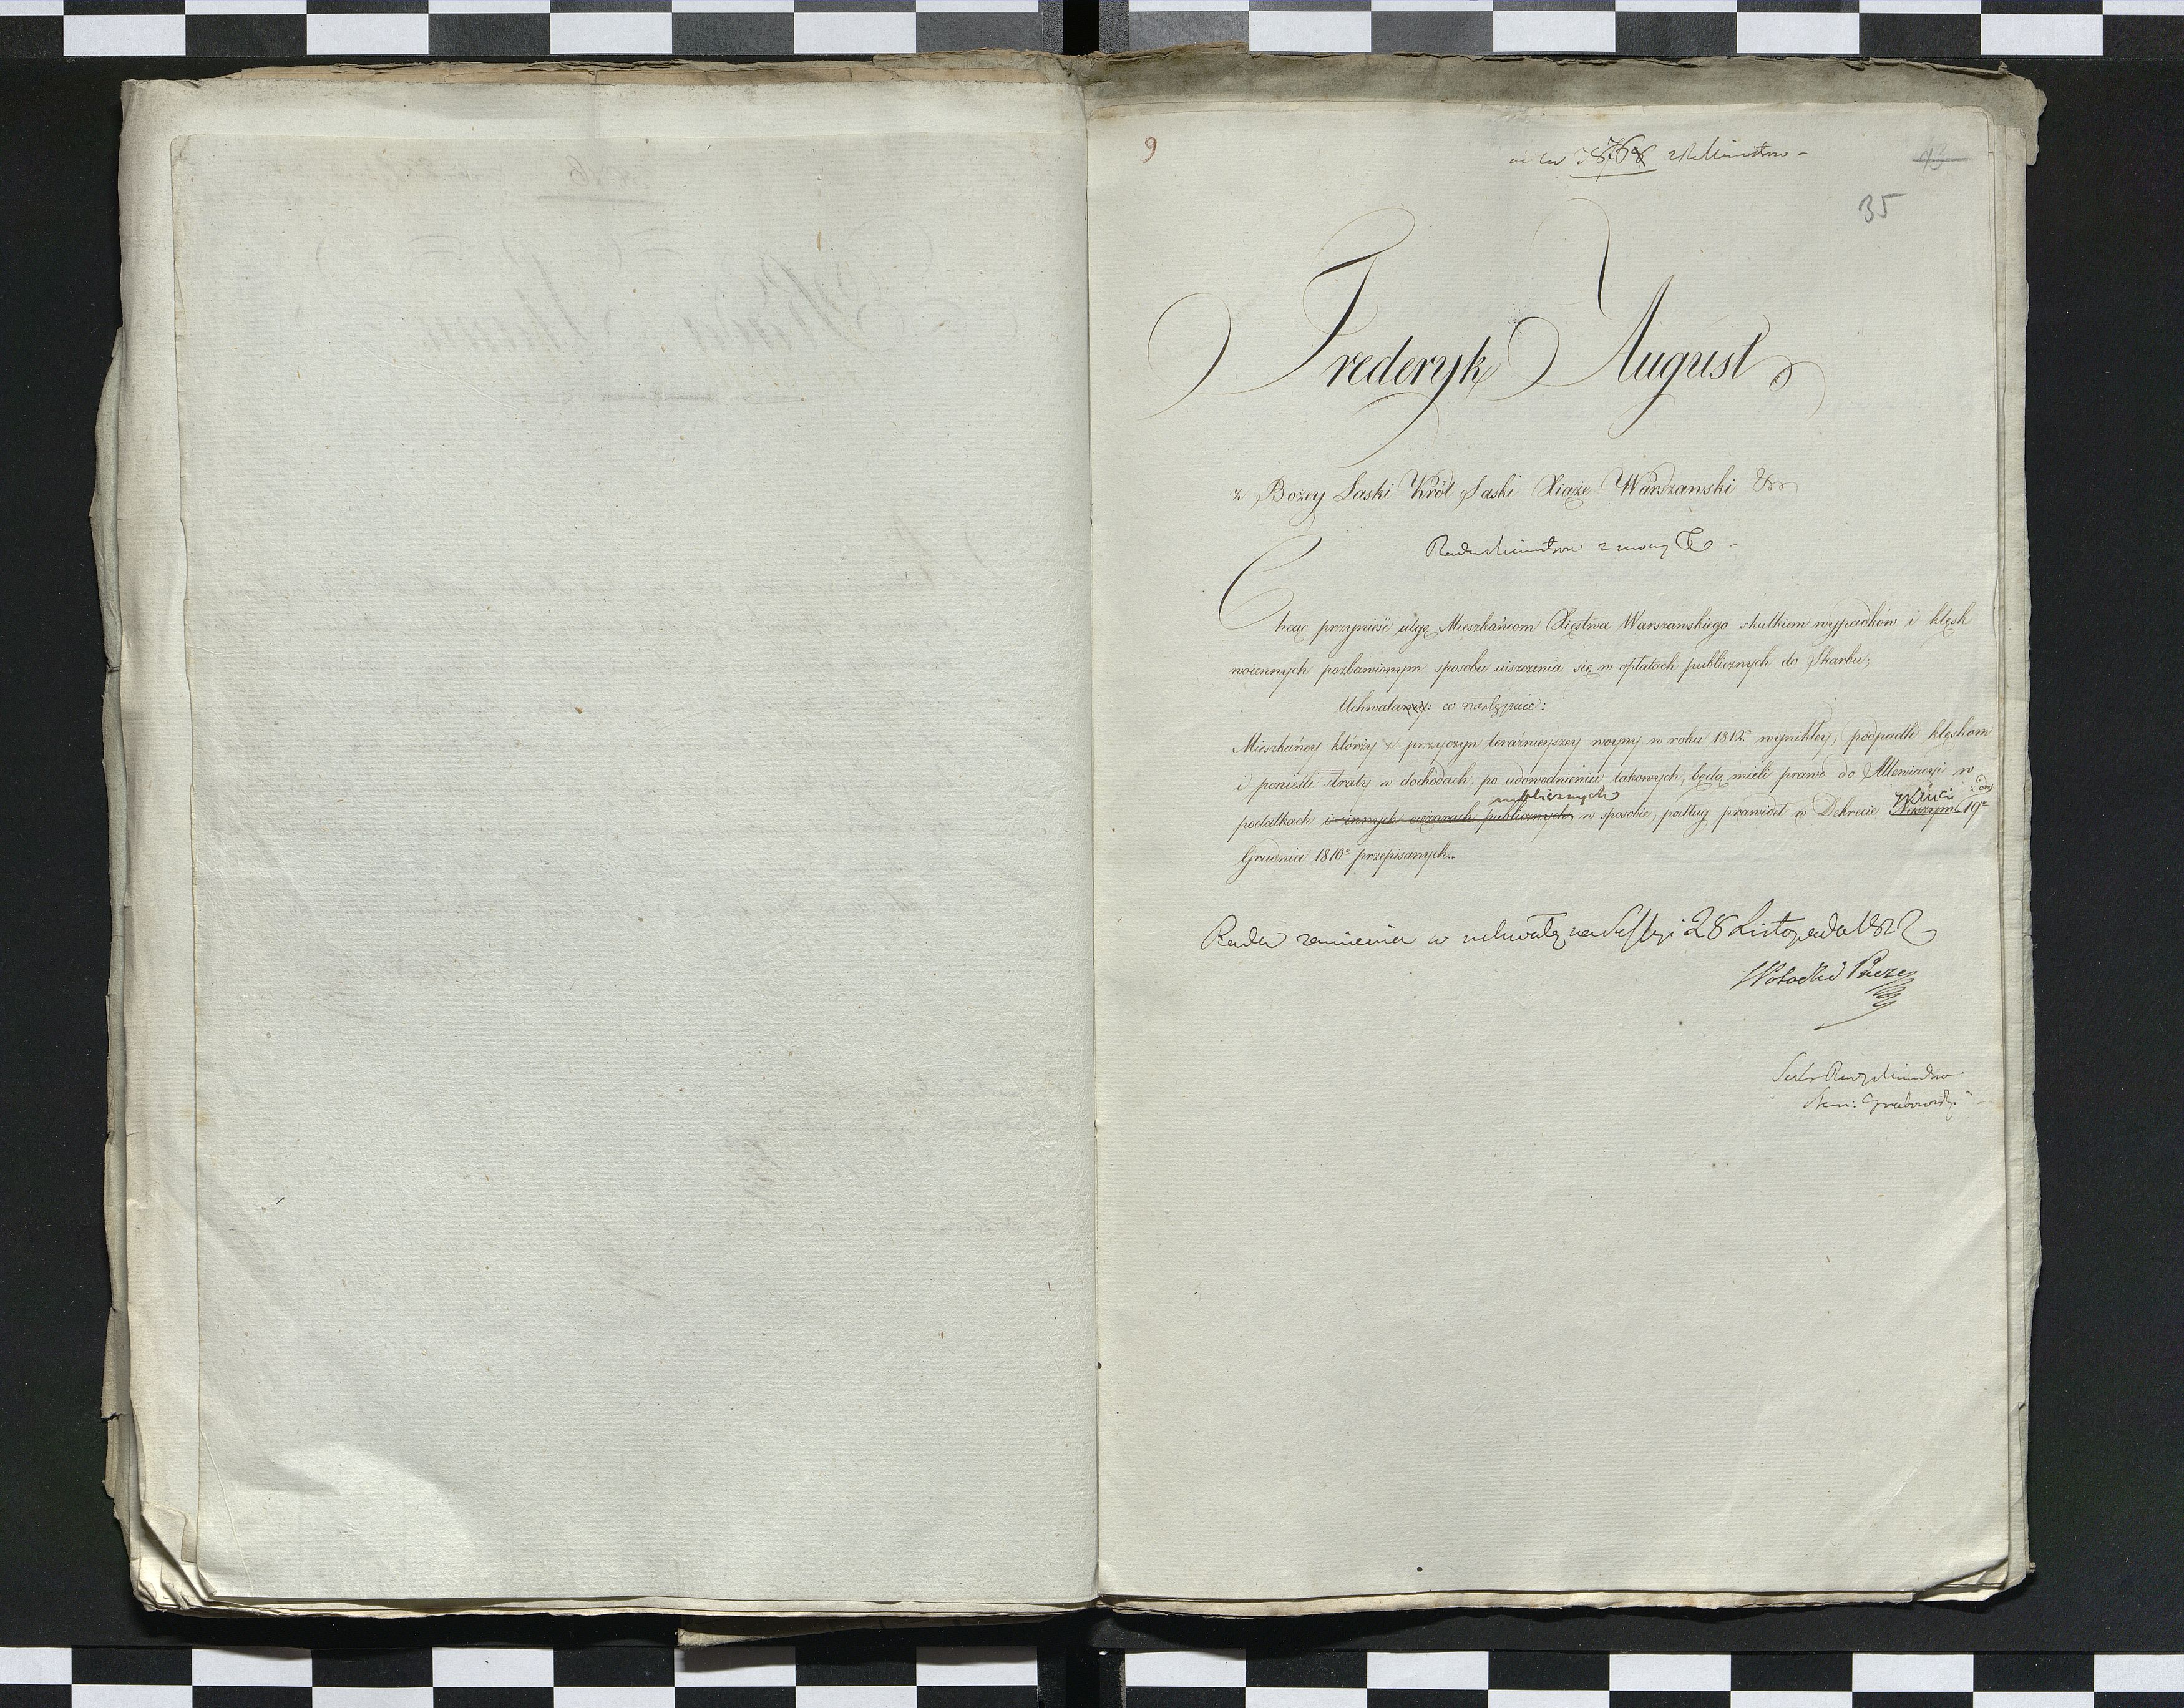 9
43
35
Fryderyk August
z Bożey Łaski Król Saski Xiąże Warszawski &c
Rada Ministrow z mocy
Chcąc przynieść ulgę Mieszkańcom Xięstwa Warszawskiego skutkiem wypadków i klęsk
woiennych pozbawionym sposobu uiszczenia się w opłatach publicznych do Skarbu;
Uchwalamy: co następuie:
Mieszkańcy którzy z przyczyn teraźnieyszey woyny w roku 1812. wynikłey, podpadli klęskom
i ponieśli straty w dochodach, po udowodnieniu takowych, będą mieli prawo do Allewiacyi w
publicznych
podatkach i innych ciężarach publicznych w sposobie, podług prawideł w Dekrecie Naszym 19
Grudnia 1810 przepisanych.
Rada zamienia w uchwałę na Sessyi 28 Listopada 1812
Sekr Rady Ministrow
Grabowski